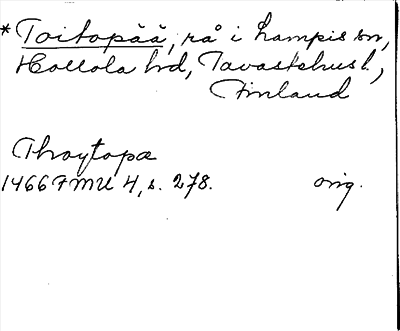 *Toitopää, rå i Lampis sn,
Hollola hd, Tavastehus l.,
Finland
Throytopæ
1466 FMU 4, s. 278. orig.